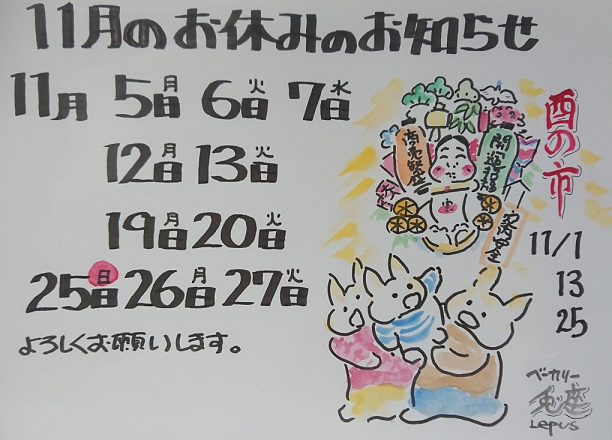 11月のお休みのお知らせ
11月 5月日 6火日 7水日
12月日 13火日
19月日 20火日
25日日 26月日 27火日
よろしくお願いします。
商売繁盛
開運招福
酉の市
11/1
13
25
ベーカリー
兎座
Lepus